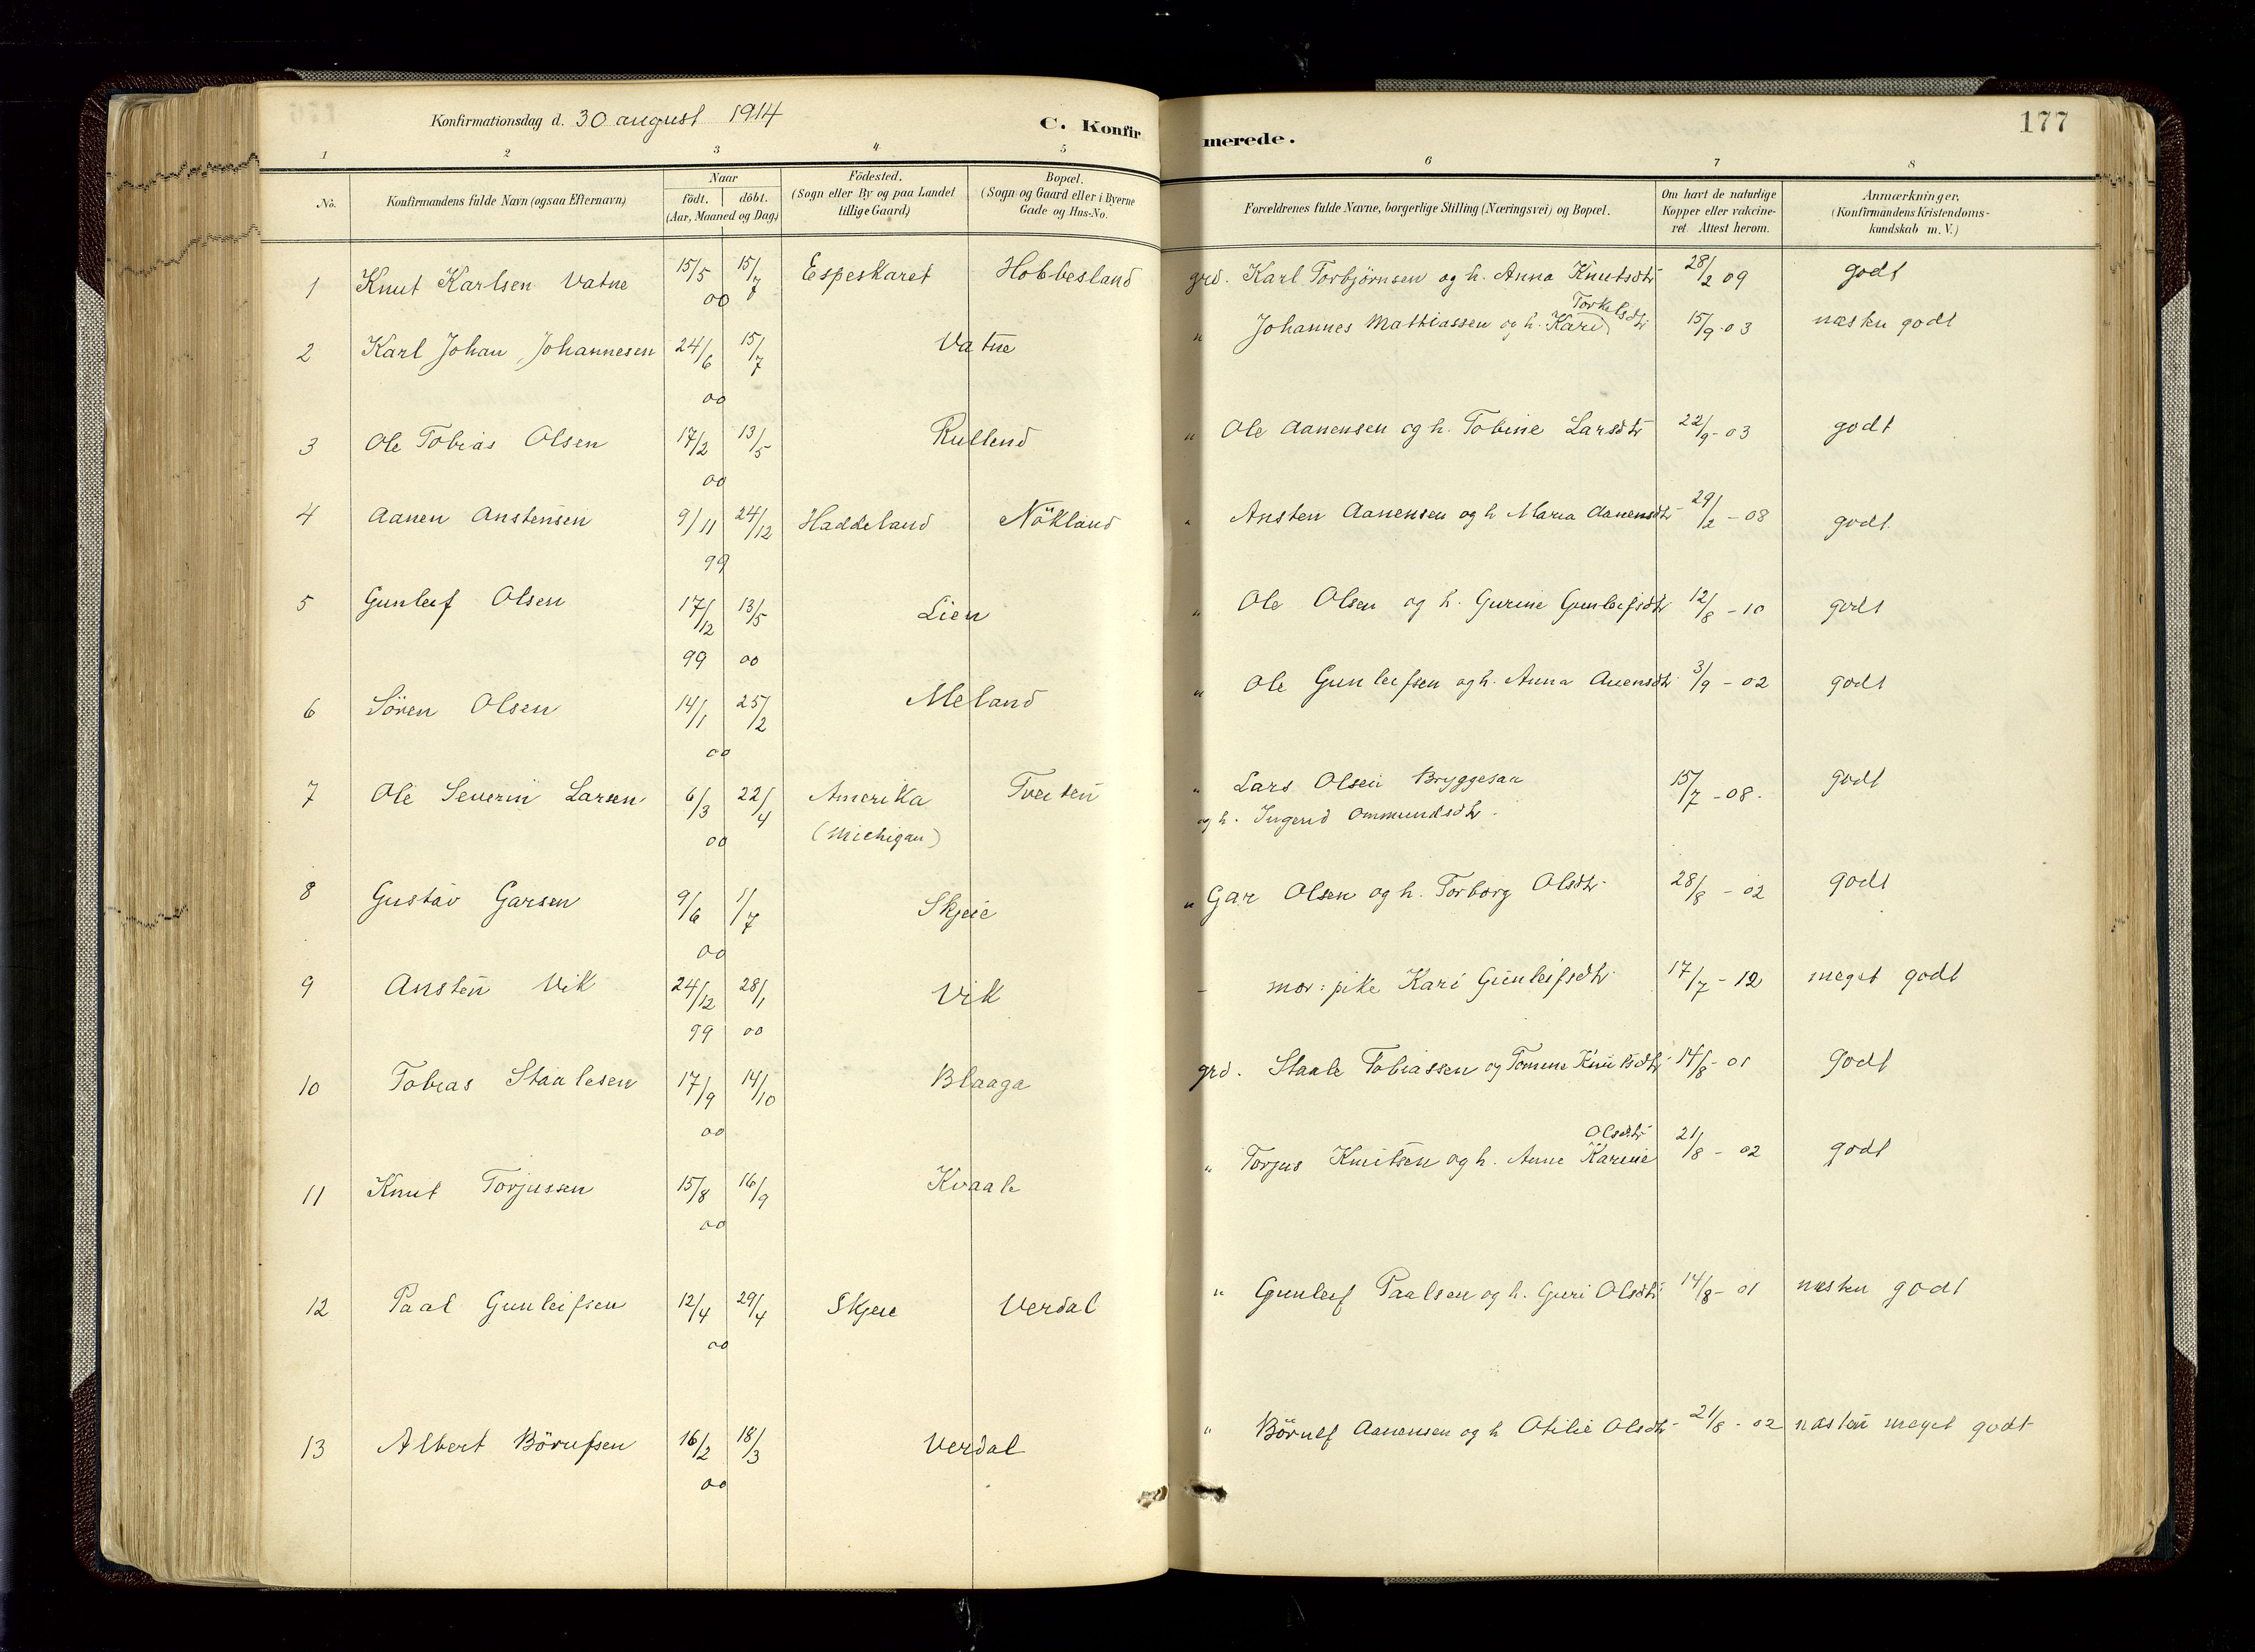 Konfirmationsdag d. 30 august 1914
C. Konfirmerede.
177
1 2 3 4 5 6 7 8
No. Konfirmandens fulde Navn (ogsaa Efternavn) Naar födt. döbt. (Aar, Maaned og Dag) Födested. (Sogn eller By og paa Landet tillige Gaard) Bopæl. (Sogn og Gaard eller i Byerne Gade og Hus-No. Forældrenes fulde Navne, borgerlige Stilling (Næringsvei) og Bopæl. Om havt de naturlige Kopper eller vakcineret. Attest herom. Anmærkninger, (Konfirmandens Kristendomskundskab m. V.)
1 Knut Karlsen Vatne 15/5 15/7 00 Espeskaret Hobbesland grd. Karl Torbjørnsen og h. Anna Knutsdtr 28/2 09 godt
2 Karl Johan Johannesen 24/6 15/7 00 Vatne " Johannes Mathiassen og h. Kari Torkelsdtr 15/9-03 næsten godt
3 Ole Tobias Olsen 17/2 13/5 00 Rullend " Ole Aanensen og h. Tobine Larsdtr 22/9-03 godt
4 Aanen Anstensen 9/11 24/12 99 Haddeland Nökland " Ansten Aanensen og h Maria Aanensdtr 29/2-08 godt
5 Gunleif Olsen 17/12 13/5 99 00 Lien " Ole Olsen og h. Gurine Gunleifsdtr 12/8-10 godt
6 Sören Olsen 14/1 25/2 00 Meland " Ole Gunleifsen og h. Anna Auensdtr 3/9-02 godt
7 Ole Severin Larsen 6/3 22/4 00 Amerika (Michigan) Tveiten " Lars Olsen Bryggesaa og h. Ingerid Ommundsdtr. 15/7-08. godt
8 Gustav Garsen 9/6 1/7 00 Skjeie " Gar Olsen og h. Torborg Olsdtr 28/8-02 godt
9 Ansten Vik 24/12 28/1 99 00 Vik - mor: pike Kari Gunleifsdtr 17/7-12 meget godt
10 Tobias Staalesen 17/9 14/10 00 Blaaga grd. Staale Tobiassen og Tomine Knutsdtr 14/8-01 godt
11 Knut Torjussen 15/8 16/9 00 Kvaale " Torjus Knutsen og h. Anne Karine Olsdtr 21/8-02 godt
12 Paal Gunleifsen 12/4 29/4 00 Skjeie Verdal " Gunleif Paalsen og h. Guri Olsdtr 14/8-01 næsten godt
13 Albert Börufsen 16/2 18/3 00 Verdal " Börulf Aanensen og h Otilie Olsdtr 21/8-02 næsten meget godt